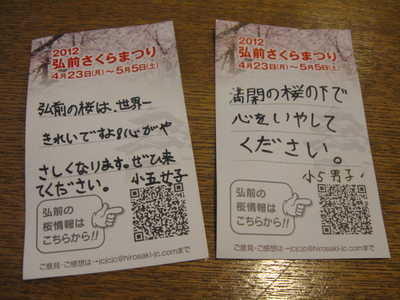 2012
弘前さくらまつり
4月23日(月)～5月5日(土)
弘前の桜は、世界一
きれいですよ！心がや
さしくなります。ぜひ来
てください。 小五女子
弘前の
桜情報は
こちらから!!
ご意見・ご感想は→jcjcjc@hirosaki-jc.comまで
2012
弘前さくらまつり
4月23日(月)～5月5日(土)
満開の桜の下で
心をいやして
ください。
小5男子
弘前の
桜情報は
こちらから!!
ご意見・ご感想は→jcjcjc@hirosaki-jc.comまで